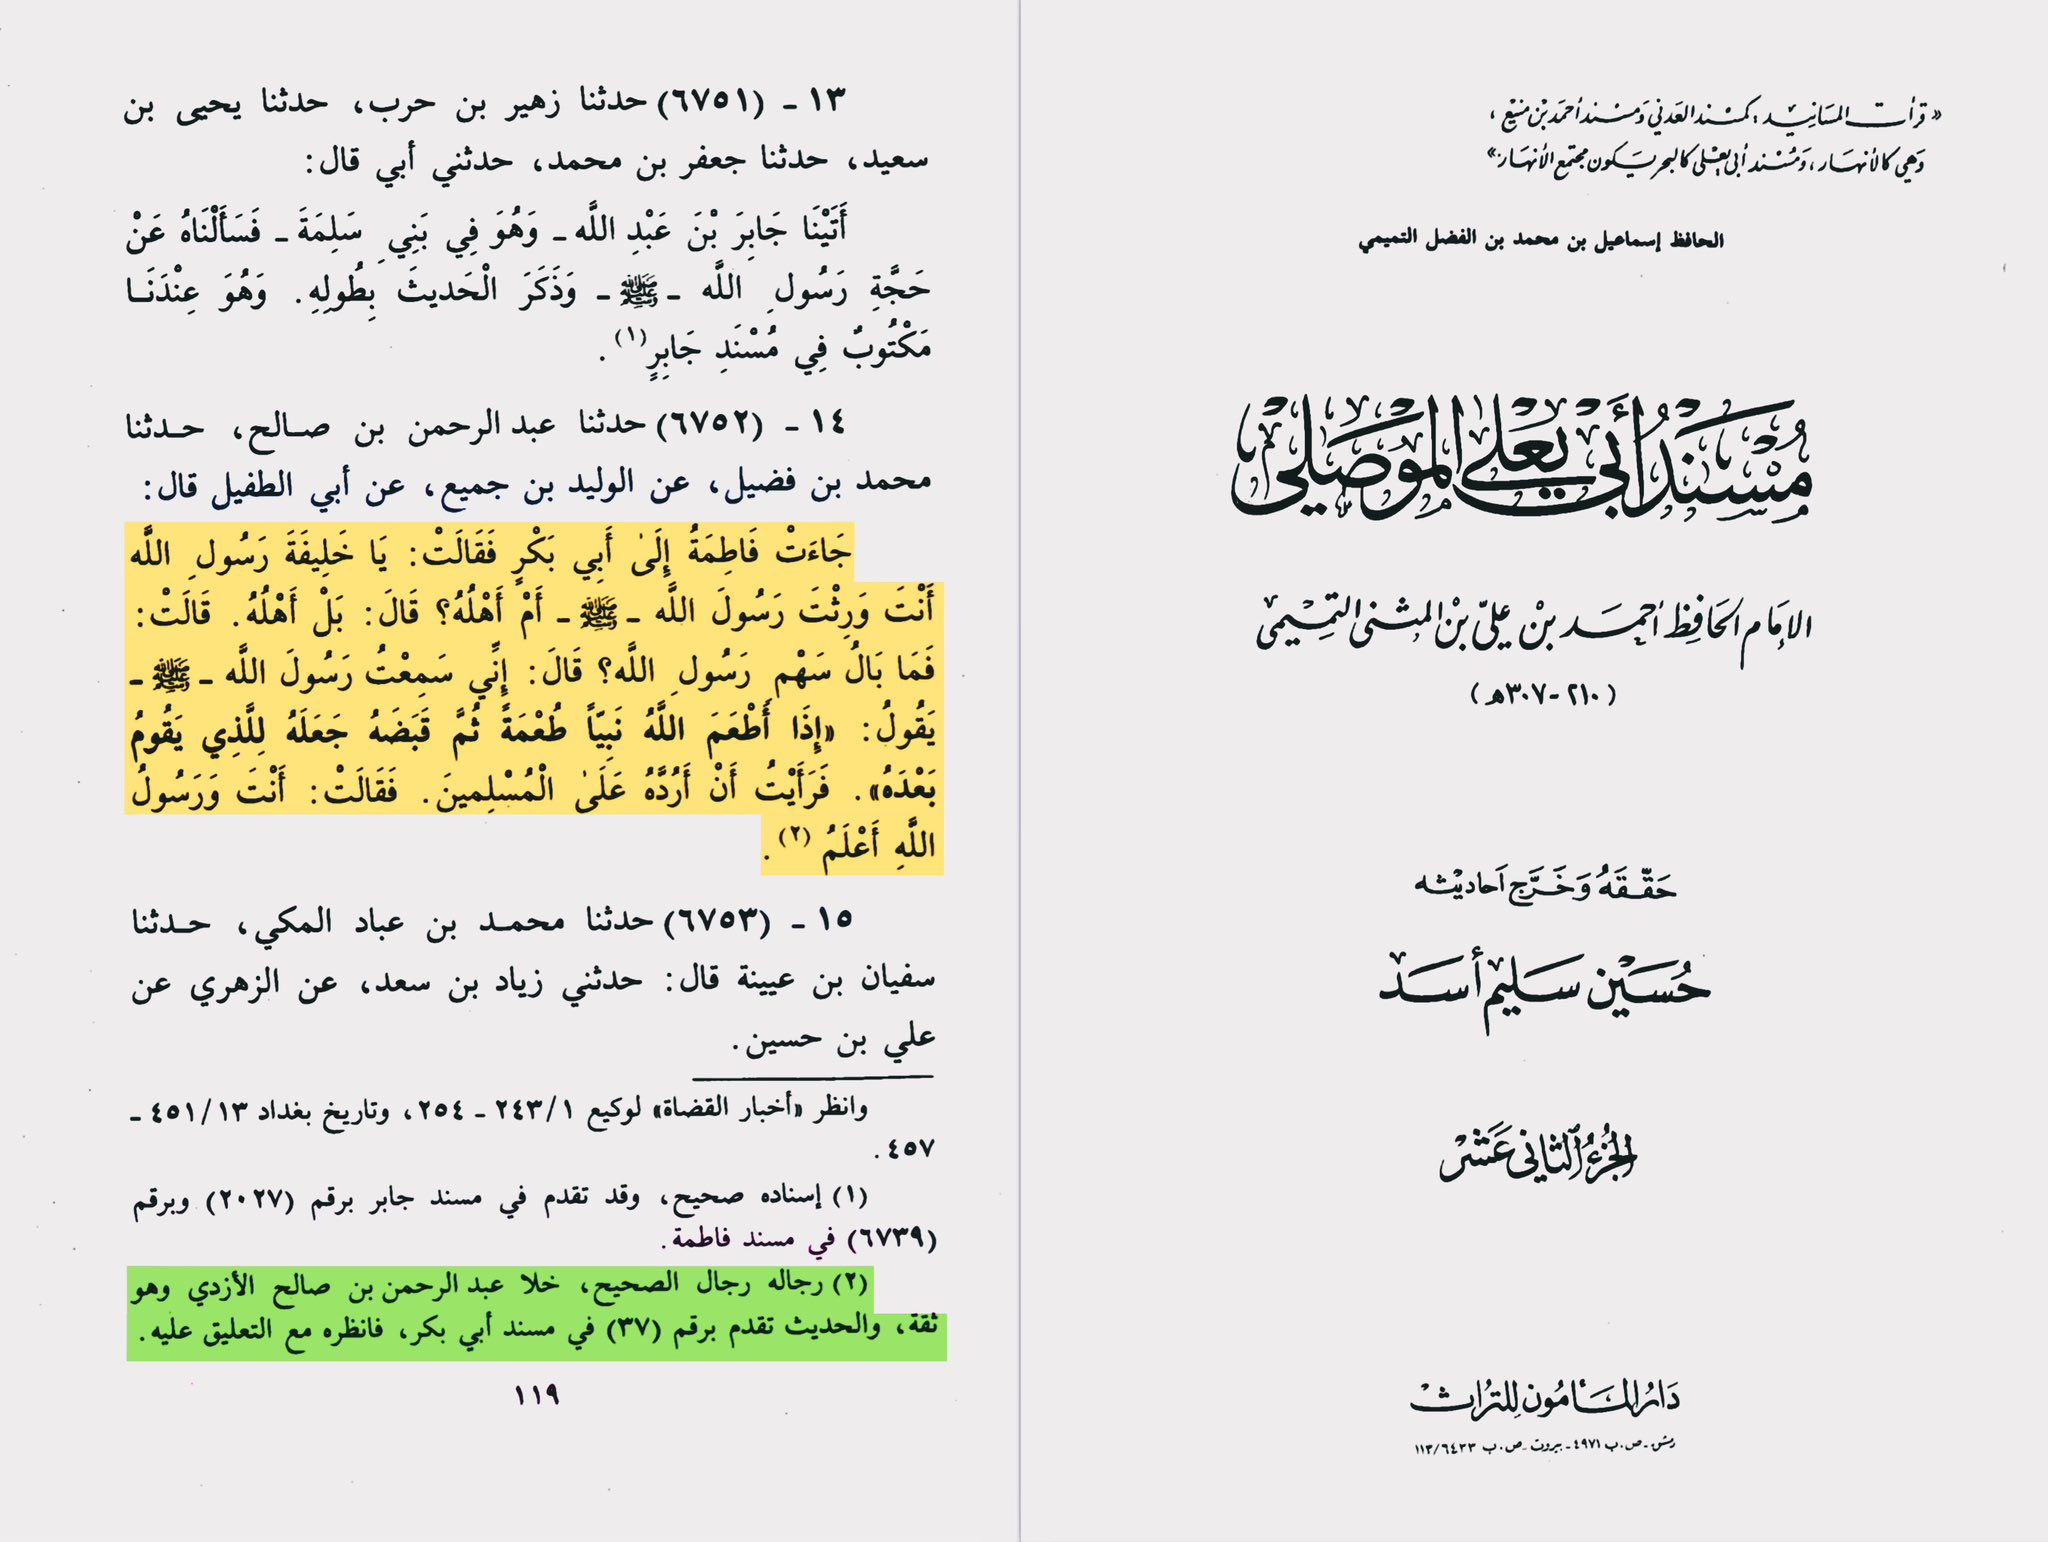 «قرأت المسانيد: كمسند العدني ومسند أحمد بن منيع،
وهي كالأنهار، ومسند أبي يعلى كالبحر يكون مجتمع الأنهار.»
الحافظ إسماعيل بن محمد بن الفضل التميمي
مُسْنَدُ أَبي يَعْلى المَوْصلي
الإمَام الحَافِظ أحمد بن عَليّ بن المثنى التميمي
(٢١٠-٣٠٧هـ)
حَقَّقَهُ وَخَرَّج أحاديثه
حُسَين سَليم أسَد
الجُزءُ الثاني عَشَر
دَارُ المَأمُون لِلتُراث
دمشق ـ ص.ب ٤٩٧١ ـ بيروت ـ ص.ب ١١٣/٦٤٣٣
١٣ ـ (٦٧٥١) حدثنا زهير بن حرب، حدثنا يحيى بن
سعيد، حدثنا جعفر بن محمد، حدثني أبي قال:
أَتَيْنَا جَابِرَ بْنَ عَبْدِ اللَّه ـ وَهُوَ فِي بَنِي سَلِمَةَ ـ فَسَأَلْنَاهُ عَنْ
حَجَّةِ رَسُولِ اللَّه ـ ﷺ ـ وَذَكَرَ الْحَديثَ بِطُولِهِ. وَهُوَ عِنْدَنَا
مَكْتُوبٌ فِي مُسْنَدِ جَابِرٍ(١).
١٤ ـ (٦٧٥٢) حدثنا عبد الرحمن بن صالح، حدثنا
محمد بن فضيل، عن الوليد بن جميع، عن أبي الطفيل قال:
جَاءَتْ فَاطِمَةُ إِلَىٰ أَبِي بَكْرٍ فَقَالَتْ: يَا خَلِيفَةَ رَسُولِ اللَّه
أَنْتَ وَرِثْتَ رَسُولَ اللَّه ـ ﷺ ـ أَمْ أَهْلُهُ؟ قَالَ: بَلْ أَهْلُهُ. قَالَتْ:
فَمَا بَالُ سَهْمِ رَسُولِ اللَّه؟ قَالَ: إِنِّي سَمِعْتُ رَسُولَ اللَّه ـ ﷺ ـ
يَقُولُ: «إِذَا أَطْعَمَ اللَّهُ نَبِيّاً طُعْمَةً ثُمَّ قَبَضَهُ جَعَلَهُ لِلَّذِي يَقُومُ
بَعْدَهُ». فَرَأَيْتُ أَنْ أَرُدَّهُ عَلَىٰ الْمُسْلِمينَ. فَقَالَتْ: أَنْتَ وَرَسُولُ
اللَّهِ أَعْلَمُ (٢).
١٥ ـ (٦٧٥٣) حدثنا محمد بن عباد المكي، حدثنا
سفيان بن عيينة قال: حدثني زياد بن سعد، عن الزهري عن
علي بن حسين.
وانظر «أخبار القضاة» لوكيع ١/٢٤٣ ـ ٢٥٤، وتاريخ بغداد ١٣/٤٥١ ـ
٤٥٧.
(١) إسناده صحيح، وقد تقدم في مسند جابر برقم (٢٠٢٧) وبرقم
(٦٧٣٩) في مسند فاطمة.
(٢) رجاله رجال الصحيح، خلا عبد الرحمن بن صالح الأزدي وهو
ثقة، والحديث تقدم برقم (٣٧) في مسند أبي بكر، فانظره مع التعليق عليه.
١١٩